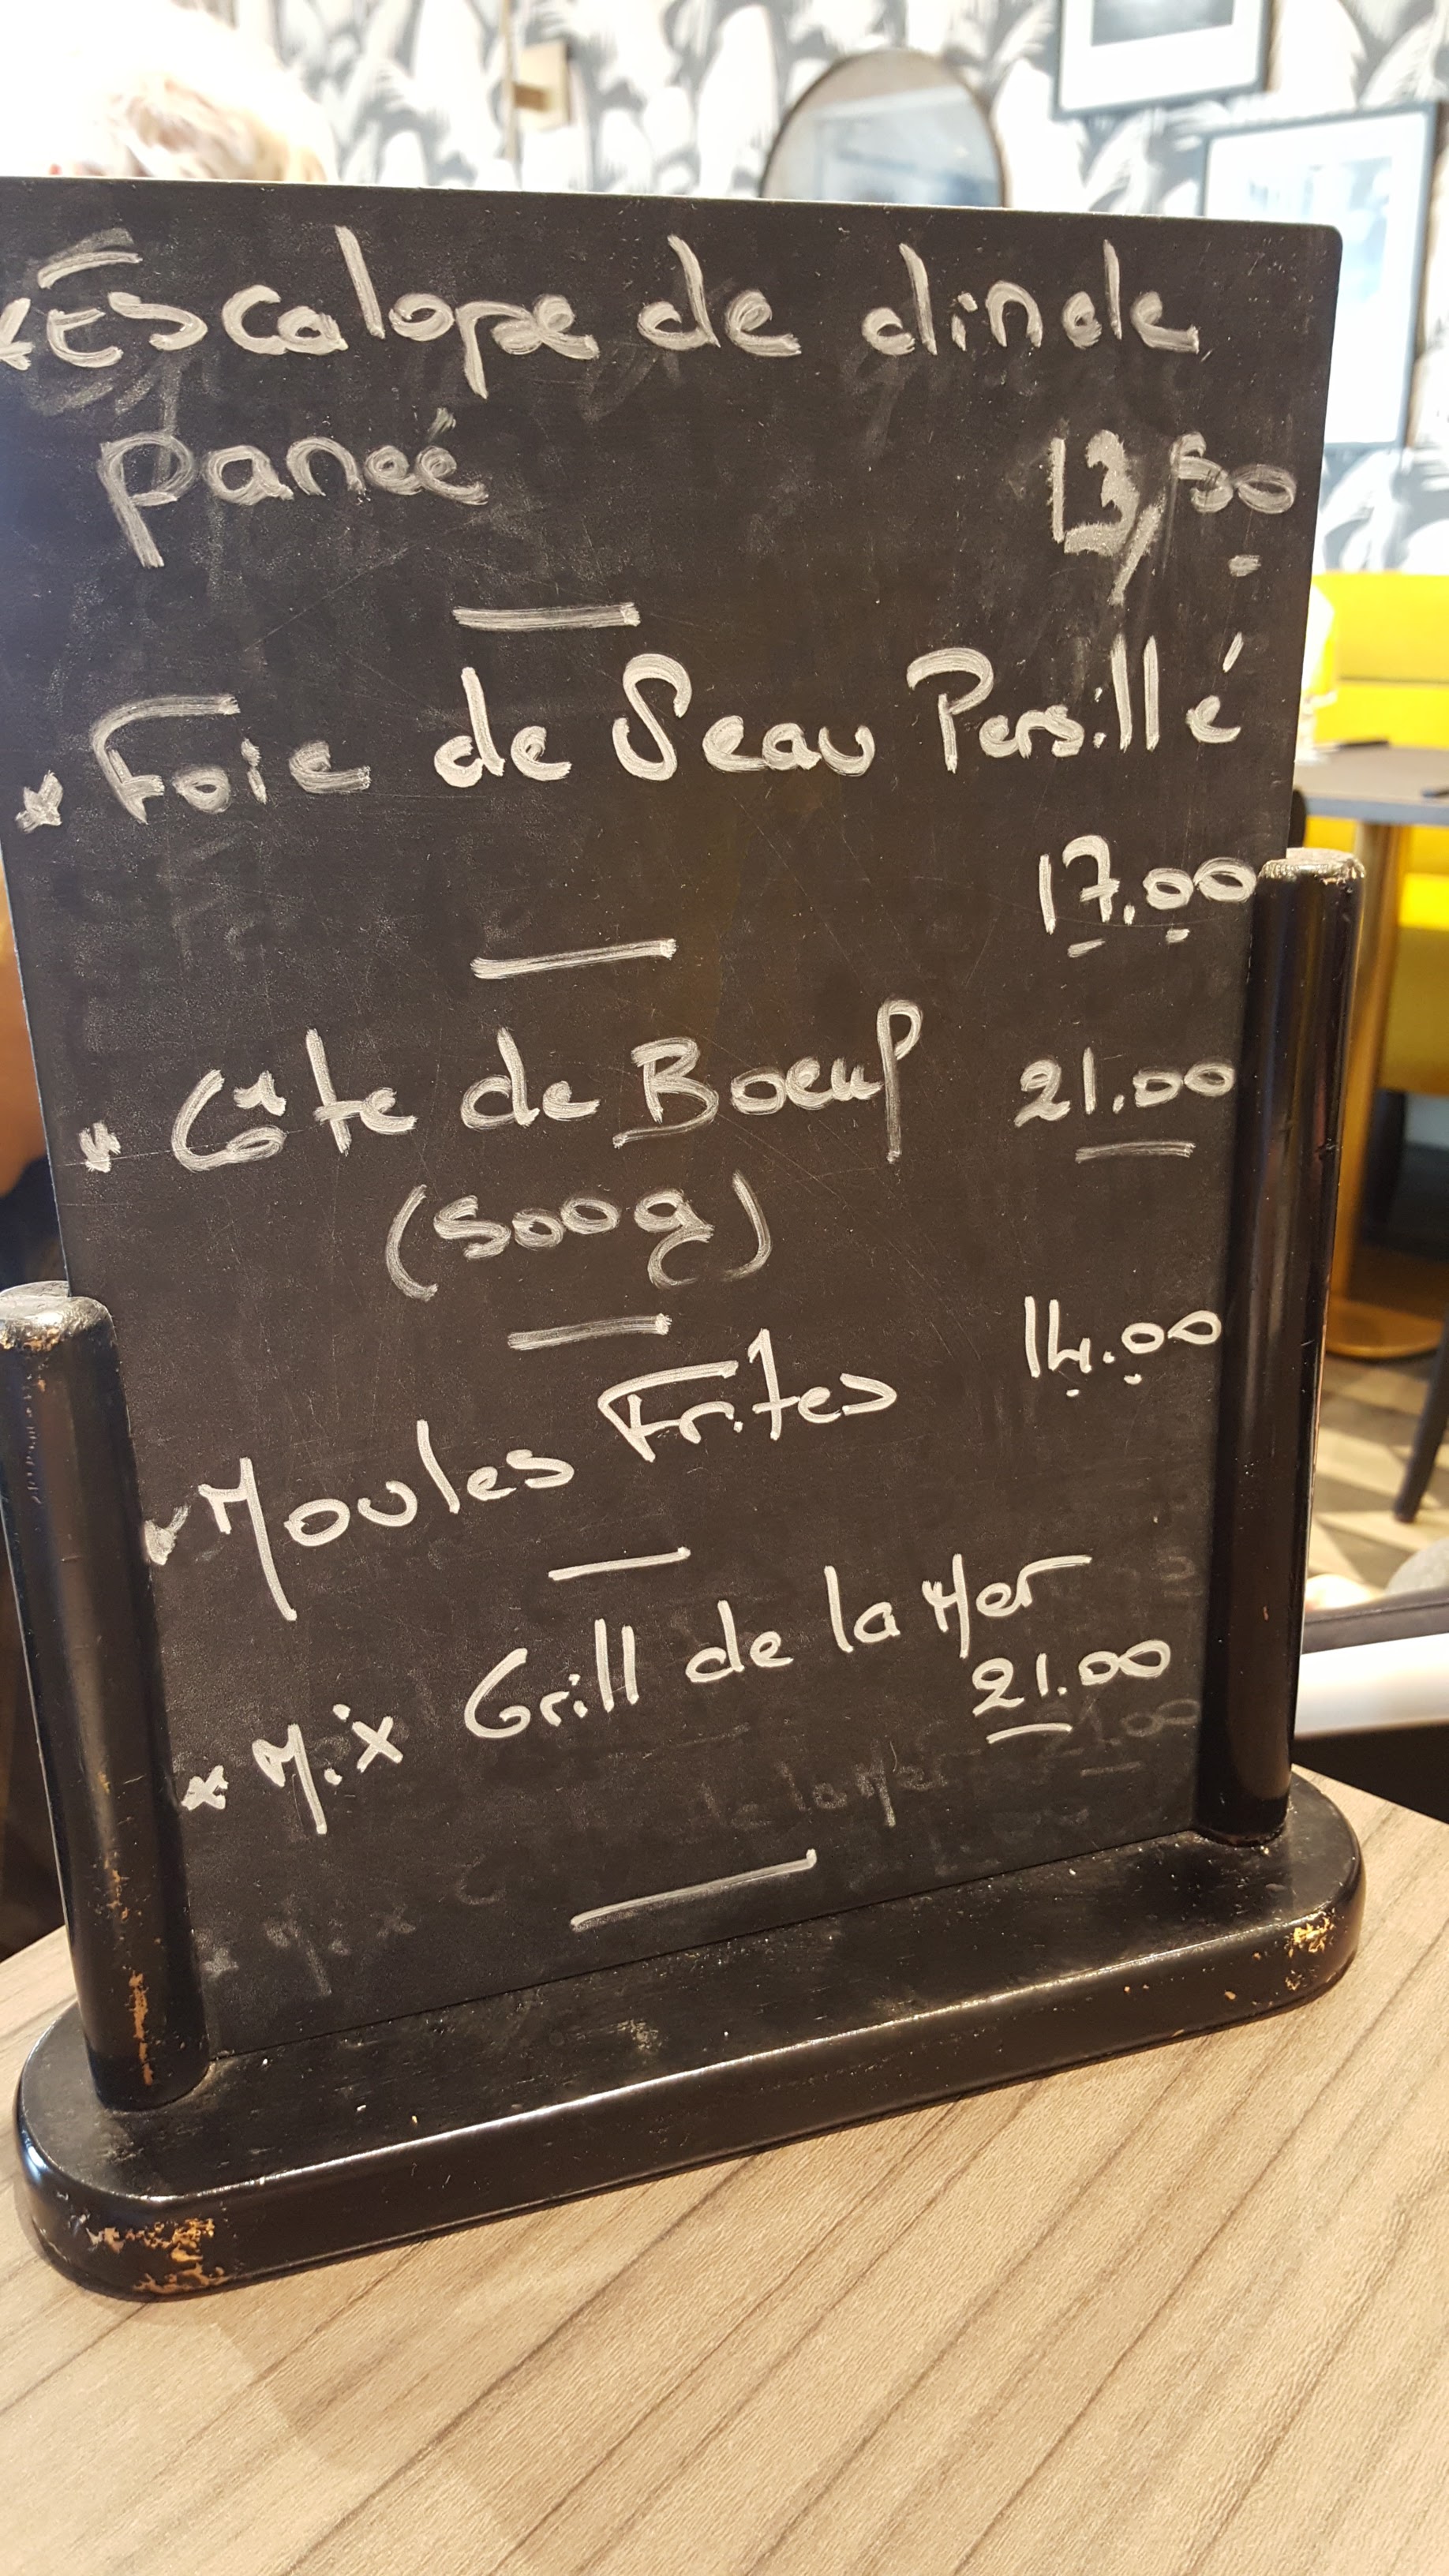 * Escalope de dinde
paneé 13,50
* Foie de Veau Persillé
17.00
* Côte de Boeuf 21.00
(500g)
14.00
* Moules Frites
* Mix Grill de la Mer
21.00
de la Mer 21.00
* Mix